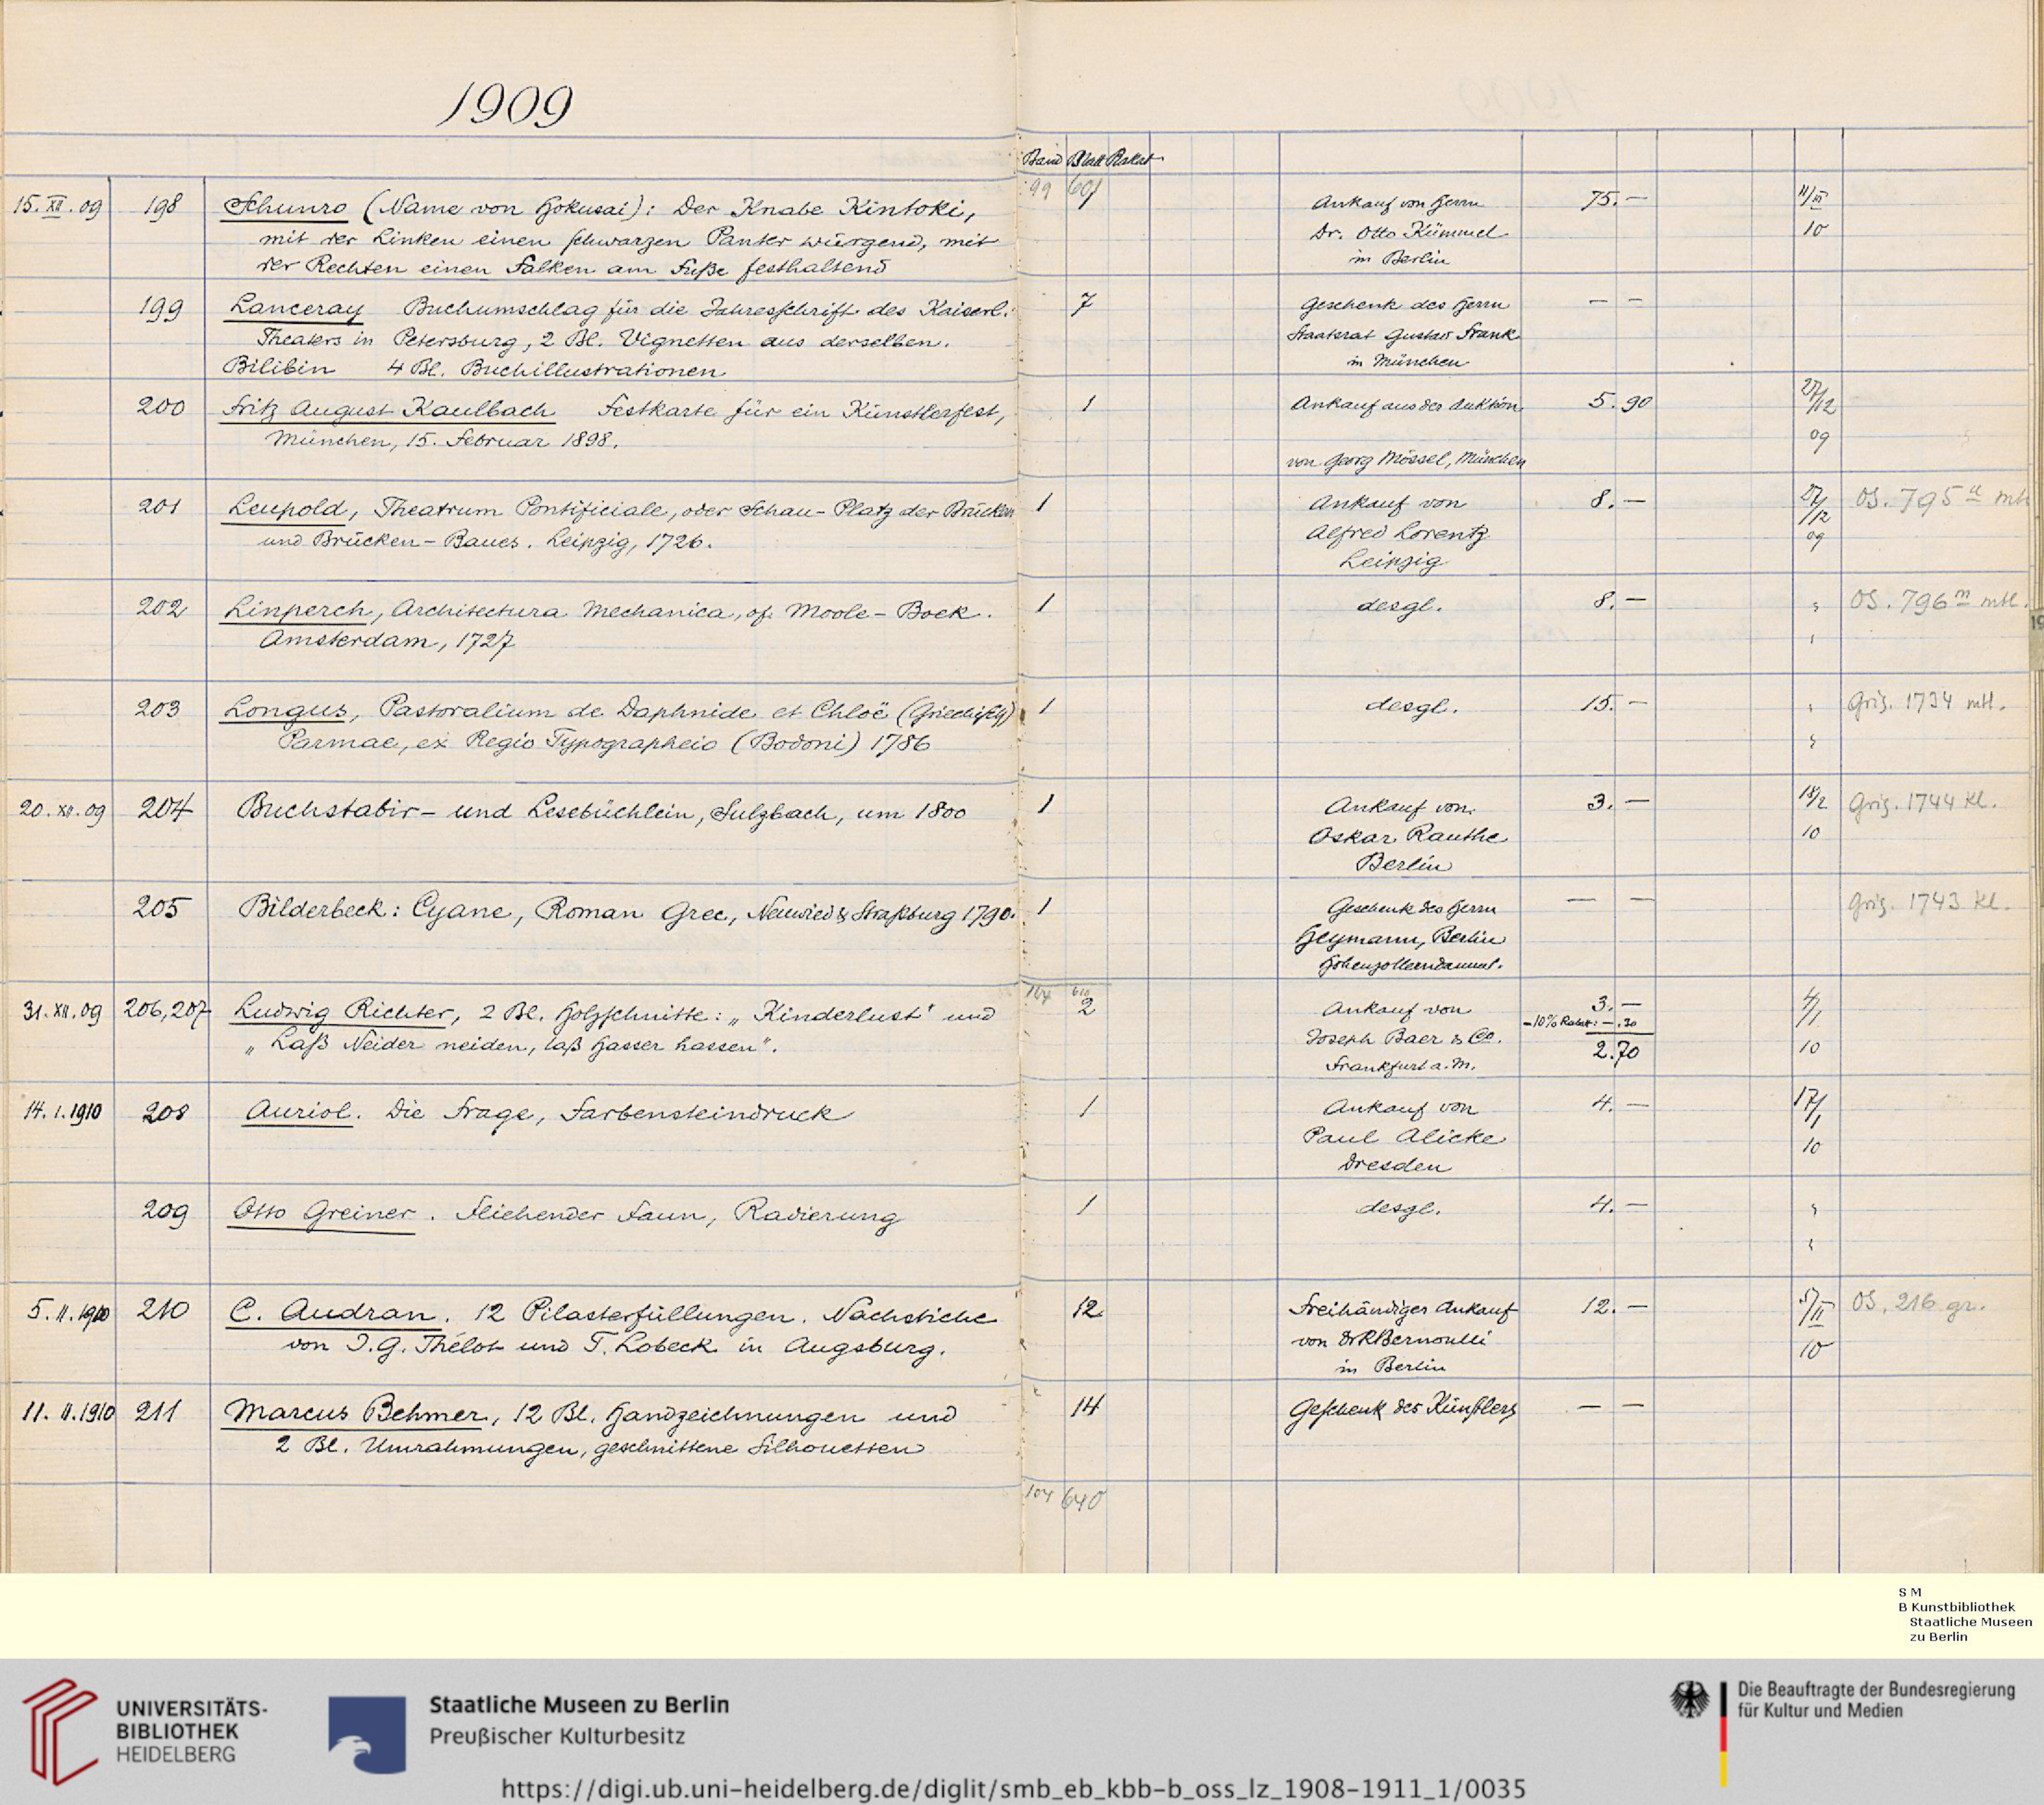 1909
Band Blatt Plakat
99 601
15. XII. 09 198 Shunro (Name von Hokusai): Der Knabe Kintoki,
mit der Linken einen schwarzen Panter würgend, mit
der Rechten einen Falken am Fuße festhaltend
Ankauf von Herrn
Dr. Otto Kümmel
in Berlin
75.—
11/III
10
199 Lanceray Buchumschlag für die Jahresschrift des Kaiserl.
Theaters in Petersburg, 2 Bl. Vignetten aus derselben.
Bilibin 4 Bl. Buchillustrationen
7
Geschenk des Herrn
Staatsrat Gustav Frank
in München
— —
200 Fritz August Kaulbach Festkarte für ein Künstlerfest,
München, 15. Februar 1898.
1
Ankauf aus der Auktion
von Georg Mössel, München
5.90
27/12
09
201 Leupold, Theatrum Pontificiale, oder Schau-Platz der Brücken
und Brücken-Baues. Leipzig, 1726.
1
Ankauf von
Alfred Lorentz
Leipzig
8.—
27/12
09
OS. 795 a mtl.
202 Linperch, Architectura Mechanica, of Moole-Boek.
Amsterdam, 1727
1
desgl.
8.—
OS. 796 m mtl.
203 Longus, Pastoralium de Daphnide et Chloë (Griechisch)
Parmae, ex Regio Typographeio (Bodoni) 1786
1
desgl.
15.—
Gris. 1734 mtl.
20. XII. 09 204 Buchstabir- und Lesebüchlein, Sulzbach, um 1800
1
Ankauf von
Oskar Rauthe
Berlin
3.—
18/2
10
Gris. 1744 kl.
205 Bilderbeck: Cyane, Roman Grec, Neuwied & Straßburg 1790.
1
Geschenk des Herrn
Heymann, Berlin
Hohenzollerndamm.
— —
Gris. 1743 kl.
104 610
31. XII. 09 206, 207 Ludwig Richter, 2 Bl. Holzschnitte: „Kinderlust" und
„Laß Neider neiden, laß Hasser hassen".
2
Ankauf von
Joseph Baer & Co.
Frankfurt a. M.
3.—
-10% Rabatt: —.30
2.70
4/1
10
14. 1. 1910 208 Auriol. Die Frage, Farbensteindruck
1
Ankauf von
Paul Alicke
Dresden
4.—
17/1
10
209 Otto Greiner. Fliehender Faun, Radierung
1
desgl.
4.—
5. II. 1910 210 C. Audran. 12 Pilasterfüllungen. Nachstiche
von J. G. Thélot und T. Lobeck in Augsburg.
12.
Freihändiger Ankauf
von Dr R Bernoulli
in Berlin
12.—
5/II
10
OS. 216 gr.
11. II. 1910 211 Marcus Behmer, 12 Bl. Handzeichnungen und
2 Bl. Umrahmungen, geschnittene Silhouetten
14
Geschenk des Künstlers
— —
104 640
S M
B Kunstbibliothek
Staatliche Museen
zu Berlin
UNIVERSITÄTS-
BIBLIOTHEK
HEIDELBERG
Staatliche Museen zu Berlin
Preußischer Kulturbesitz
Die Beauftragte der Bundesregierung
für Kultur und Medien
https://digi.ub.uni-heidelberg.de/diglit/smb_eb_kbb-b_oss_lz_1908-1911_1/0035